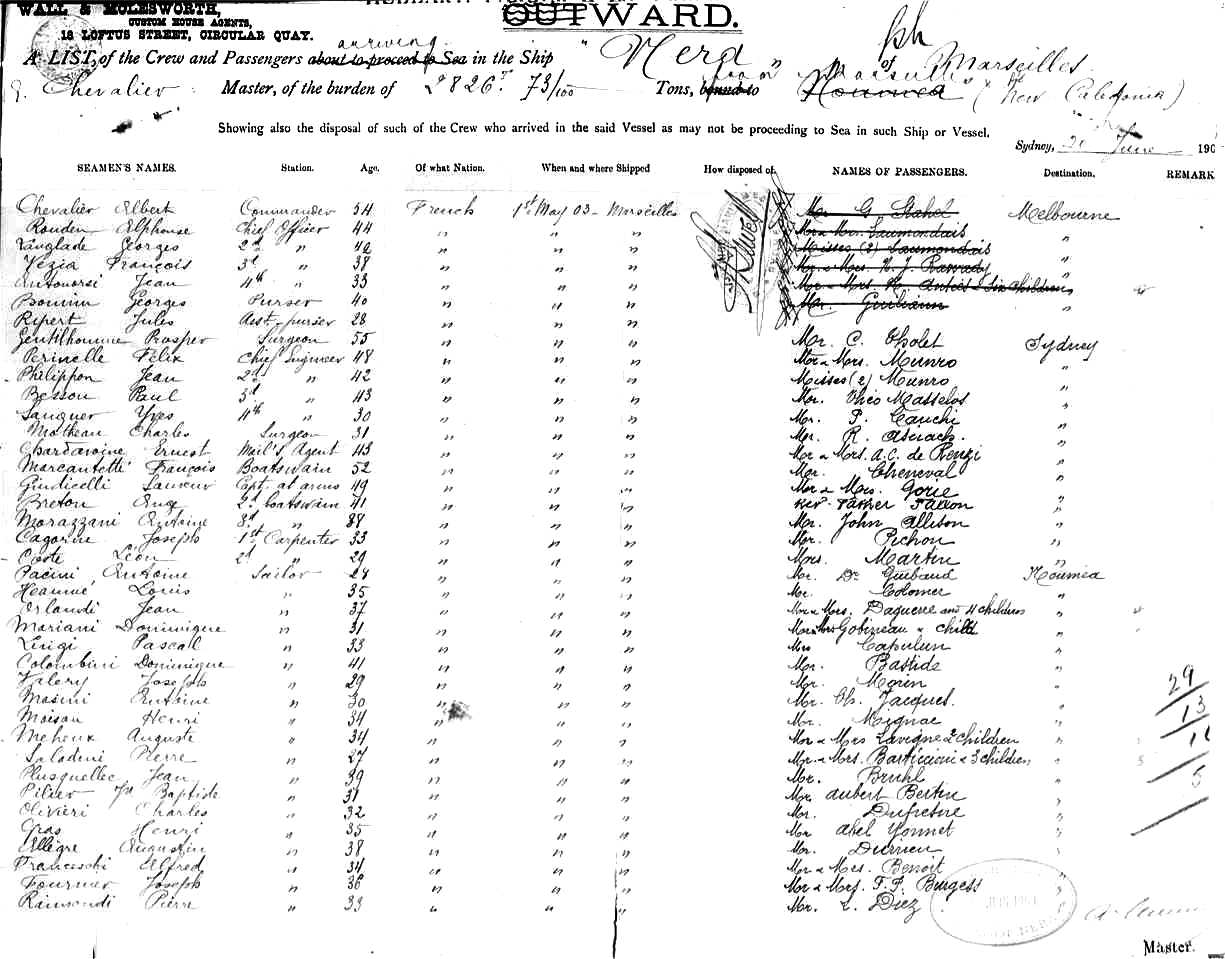 WALL & MOLESWORTH,
CUSTOM HOUSE AGENTS,
18 LOFTUS STREET, CIRCULAR QUAY.
OUTWARD.
A LIST, of the Crew and Passengers about to proceed to Sea arriving in the Ship "Nera" of Marseilles
E. Chevalier Master, of the burden of 2826 73/100 Tons, bound to from Marseilles Noumea (New Caledonia)
Showing also the disposal of such of the Crew who arrived in the said Vessel as may not be proceeding to Sea in such Ship or Vessel.
Sydney, June 190
SEAMEN'S NAMES. Station. Age. Of what Nation. When and where Shipped How disposed of. NAMES OF PASSENGERS. Destination. REMARK
Chevalier Albert Commander 54 French 1st May 03 - Marseilles Mr G. Stahel Melbourne
Rouden Alphonse Chief Officer 44 " " " Mr & Mrs. Saumondais "
Langlade Georges 2d " 40 " " " Misses (2) Saumondais "
Vezia François 3d " 38 " " " Mr & Mrs. "
Antonorsi Jean 4th " 33 " " " Mr & Mrs & Six Children "
Bouvin Georges Purser 40 " " " Mr.
Ripert Jules Asst. purser 28 " " "
Gentilhomme Prosper Surgeon 55 " " " Mr. C. Cholet Sydney
Perinelle Félix Chief Engineer 48 " " " Mr & Mrs. Munro "
Philippon Jean 2d " 42 " " " Misses (2) Munro "
Besson Paul 3d " 43 " " " Mr. Théo Masselos "
Sanquer Yves 4th " 30 " " " Mr. P. Cauchi "
Matheau Charles Surgeon 31 " " " Mr. R. "
Chardavoine Ernest Mail's Agent 43 " " " Mr & Mrs. A.C. de Renzi "
Marcantetti François Boatswain 52 " " " Mr. Cheneval "
Giudicelli Sauveur Capt. at arms 49 " " " Mr & Mrs. Gorie "
Breton Ange 2d boatswain 41 " " " Rev. Father Fallon "
Morazzani Antoine 3d " 38 " " " Mr. John Allison "
Cagorin Joseph 1st Carpenter 33 " " " Mr. Pichon "
Coste Léon 2d " 29 " " " Mrs. Martin "
Pacini Antoine Sailor 28 " " " Mr. Dr Guibaud Noumea
Jeanne Louis " 35 " " " Mr. Colomer "
Orlandi Jean " 37 " " " Mr & Mrs. Daguerre and 4 children "
Mariani Dominique " 31 " " " Mr & Mrs Gobineau & child "
Luigi Pascal " 33 " " " Mrs Capulun "
Colombini Dominique " 41 " " " Mr. Bastide "
Valery Joseph " 29 " " " Mr. Morin "
Masini Antoine " 30 " " " Mr. Ch. Jacques. " 29
Moison Henri " 34 " " " Mr. Mignac " 13
Meheux Auguste " 34 " " " Mr & Mrs Lavigne 2 children " 11
Saladini Pierre " 27 " " " Mr & Mrs. & 3 children "
Plusquellec Jean " 39 " " " Mr. Bruhl " 5
Pilier Jn Baptide " 31 " " " Mr Aubert Bertin "
Olivieri Charles " 32 " " " Mr. Dufresne "
Gras Henri " 35 " " " Mr Abel Yonnet "
Allègre Augustin " 38 " " " Mr. Durrieu "
Franceschi Alfred " 34 " " " Mr & Mrs. Benoit "
Fournier Joseph " 36 " " " Mr & Mrs. F. F. Burgess
Raimondi Pierre " 33 " " " Mr. L. Diez
Master.